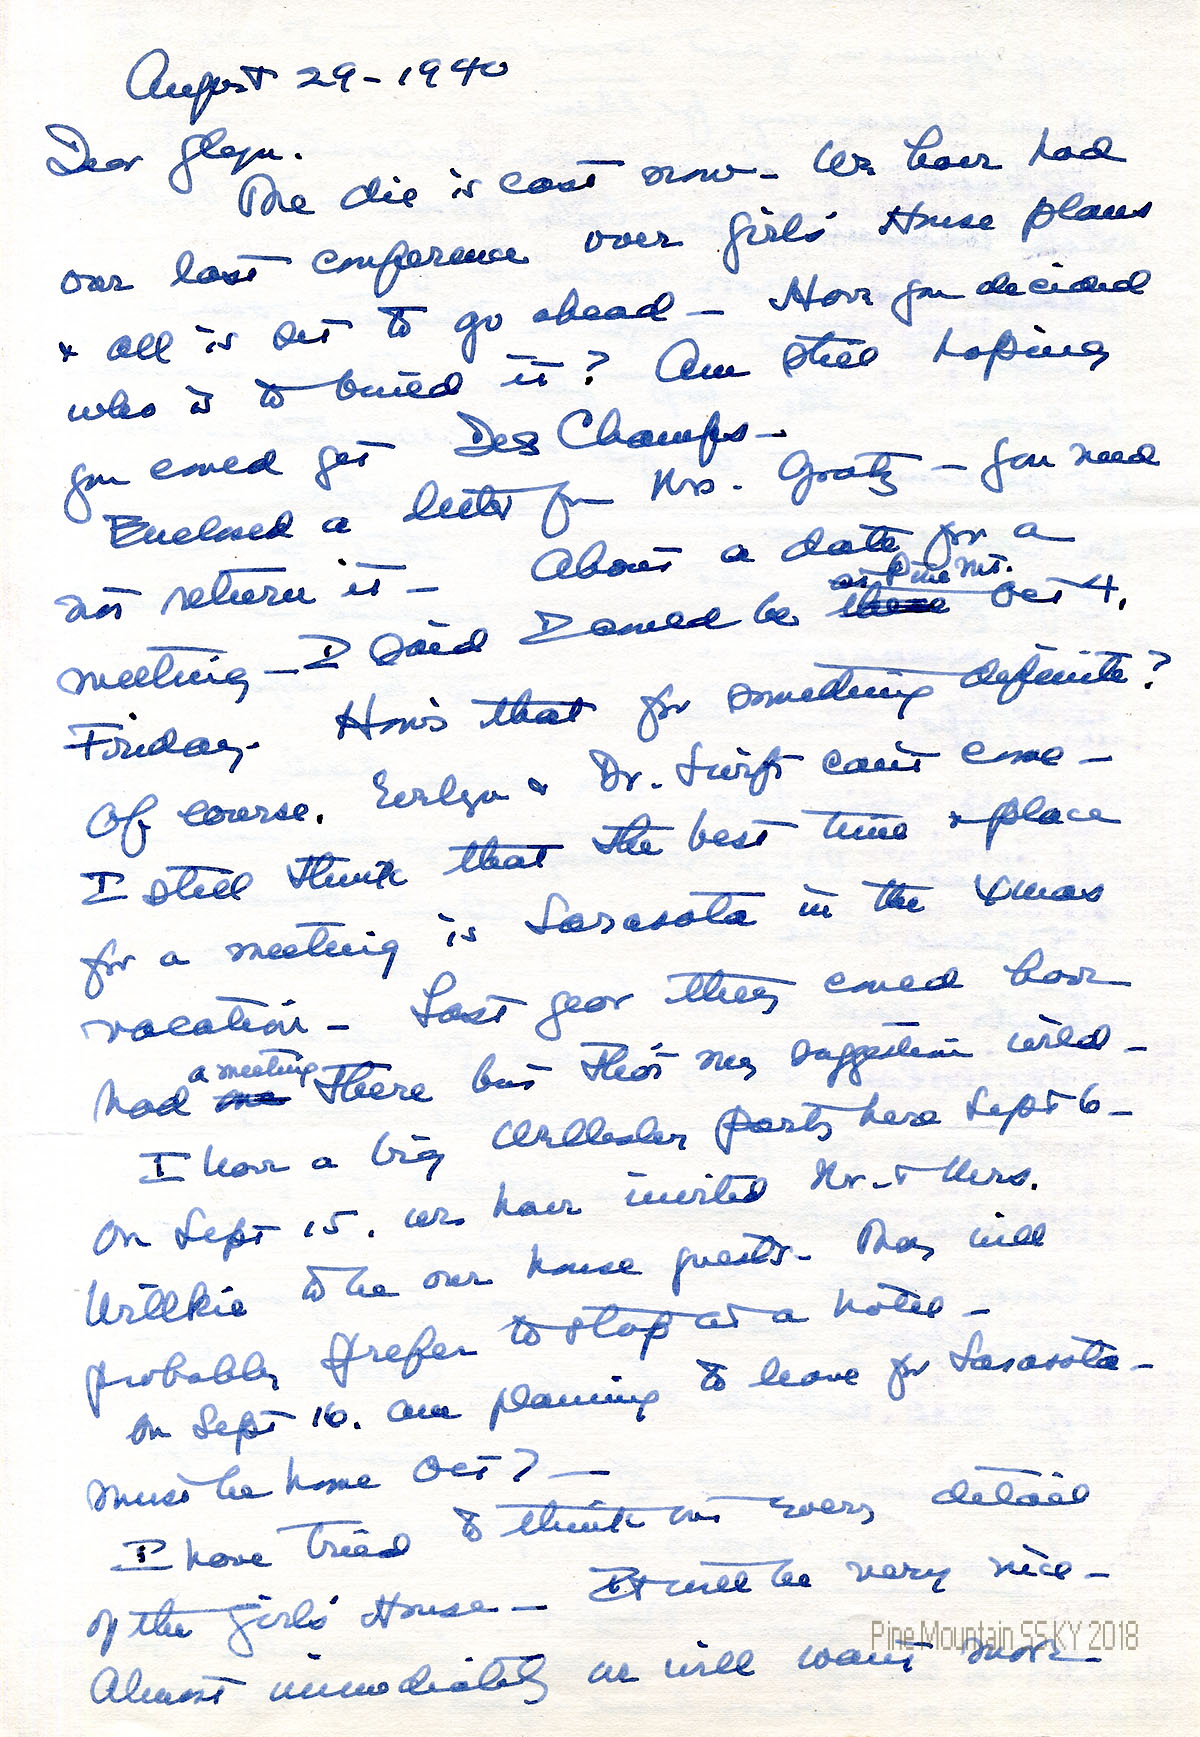 August 29 - 1940
Dear Glyn.
The die is cast now - We have had
our last conference over girls' House plans
& all is set to go ahead - Have you decided
who is to build it? Am still hoping
you could get Des Champs -
Enclosed a letter fm Mrs. Gratz - You need
not return it - About a date for a
at Pine Mt.
meeting - I said I could be there Oct 4.
Friday. How's that for something definite?
Of course. Evelyn & Dr. Swift can't come -
I still think that the best time & place
for a meeting is Sarasota in the Xmas
vacation - Last year they could have
a meeting
had one there but tho't my suggestion wild -
I have a big Wellesley party here Sept 6 -
On Sept 15. we have invited Mr. & Mrs.
Willkie to be our house guests - They will
probably prefer to stop at a hotel -
On Sept 16. am planning to leave for Sarasota -
must be home Oct ? -
I have tried to think out every detail
of the girls' House - It will be very nice -
Almost immediately we will want more
Pine Mountain SS KY 2018